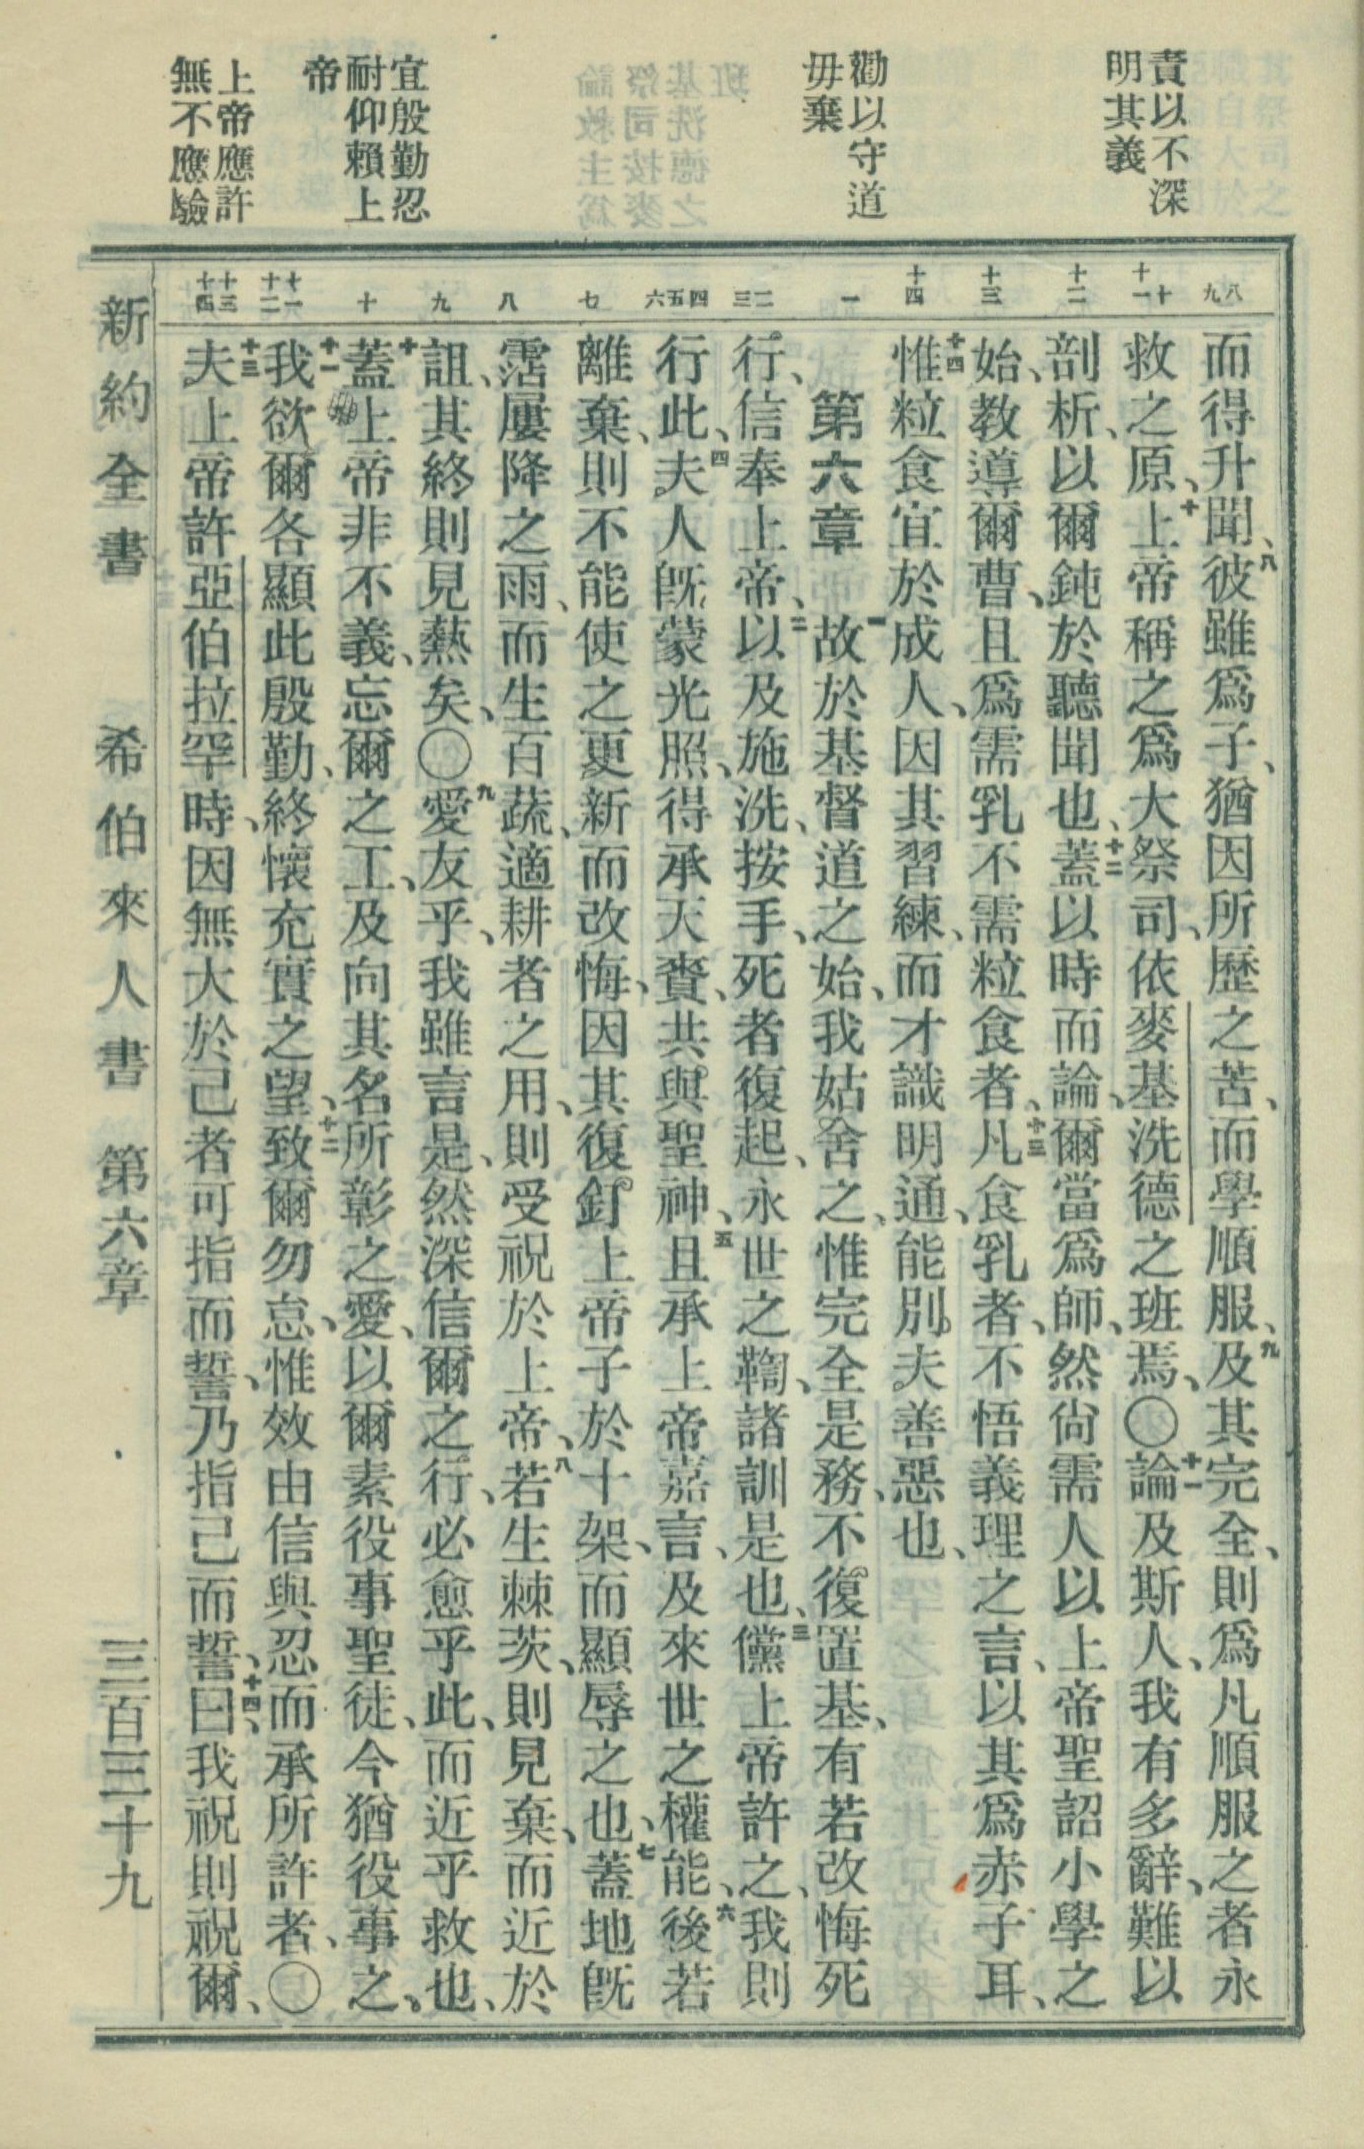 責以不深
明其義
勸以守道
毋棄
宜殷勤忍
耐仰賴上
帝
上帝應許
無不應驗
八
九
十
十一
十二
十三
十四
一
二
三
四
五
六
七
八
九
十
十一
十二
十三
十四
而得升聞、八彼雖爲子、猶因所歷之苦、而學順服、九及其完全、則爲凡順服之者永
救之原、十上帝稱之爲大祭司、依麥基洗德之班焉、〇十一論及斯人、我有多辭、難以
剖析、以爾鈍於聽聞也、十二蓋以時而論、爾當爲師、然尙需人以上帝聖詔小學之
始、教導爾曹、且爲需乳不需粒食者、十三凡食乳者、不悟義理之言、以其爲赤子耳、
十四惟粒食宜於成人、因其習練、而才識明通、能別夫善惡也、
第六章 一故於基督道之始、我姑舍之、惟完全是務、不復置基、有若改悔死
行、信奉上帝、二以及施洗、按手、死者復起、永世之鞫、諸訓是也、三儻上帝許之、我則
行此、四夫人旣蒙光照、得承天賚、共與聖神、五且承上帝嘉言、及來世之權能、六後若
離棄、則不能使之更新而改悔、因其復釘上帝子於十架、而顯辱之也、七蓋地旣
霑屢降之雨、而生百蔬、適耕者之用、則受祝於上帝、八若生棘茨、則見棄、而近於
詛、其終則見爇矣、〇九愛友乎、我雖言是、然深信爾之行、必愈乎此、而近乎救也、
十蓋上帝非不義、忘爾之工、及向其名所彰之愛、以爾素役事聖徒、今猶役事之、
十一我欲爾各顯此殷勤、終懷充實之望、十二致爾勿怠、惟效由信與忍而承所許者、〇
十三夫上帝許亞伯拉罕時、因無大於己者可指而誓、乃指己而誓、十四曰、我祝則祝爾、
新約全書 希伯來人書 第六章 三百三十九